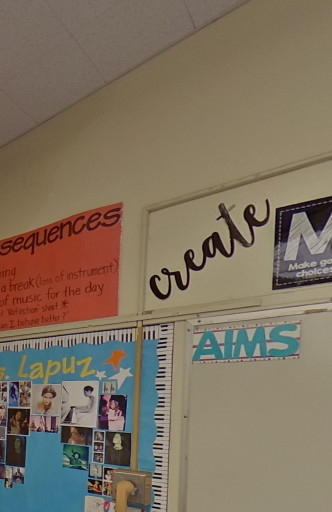 sequences
a break (loss of instrument)
of music for the day
Reflection sheet *
can I behave better?"
create
M
Make go
choices
AIMS
s. Lapuz